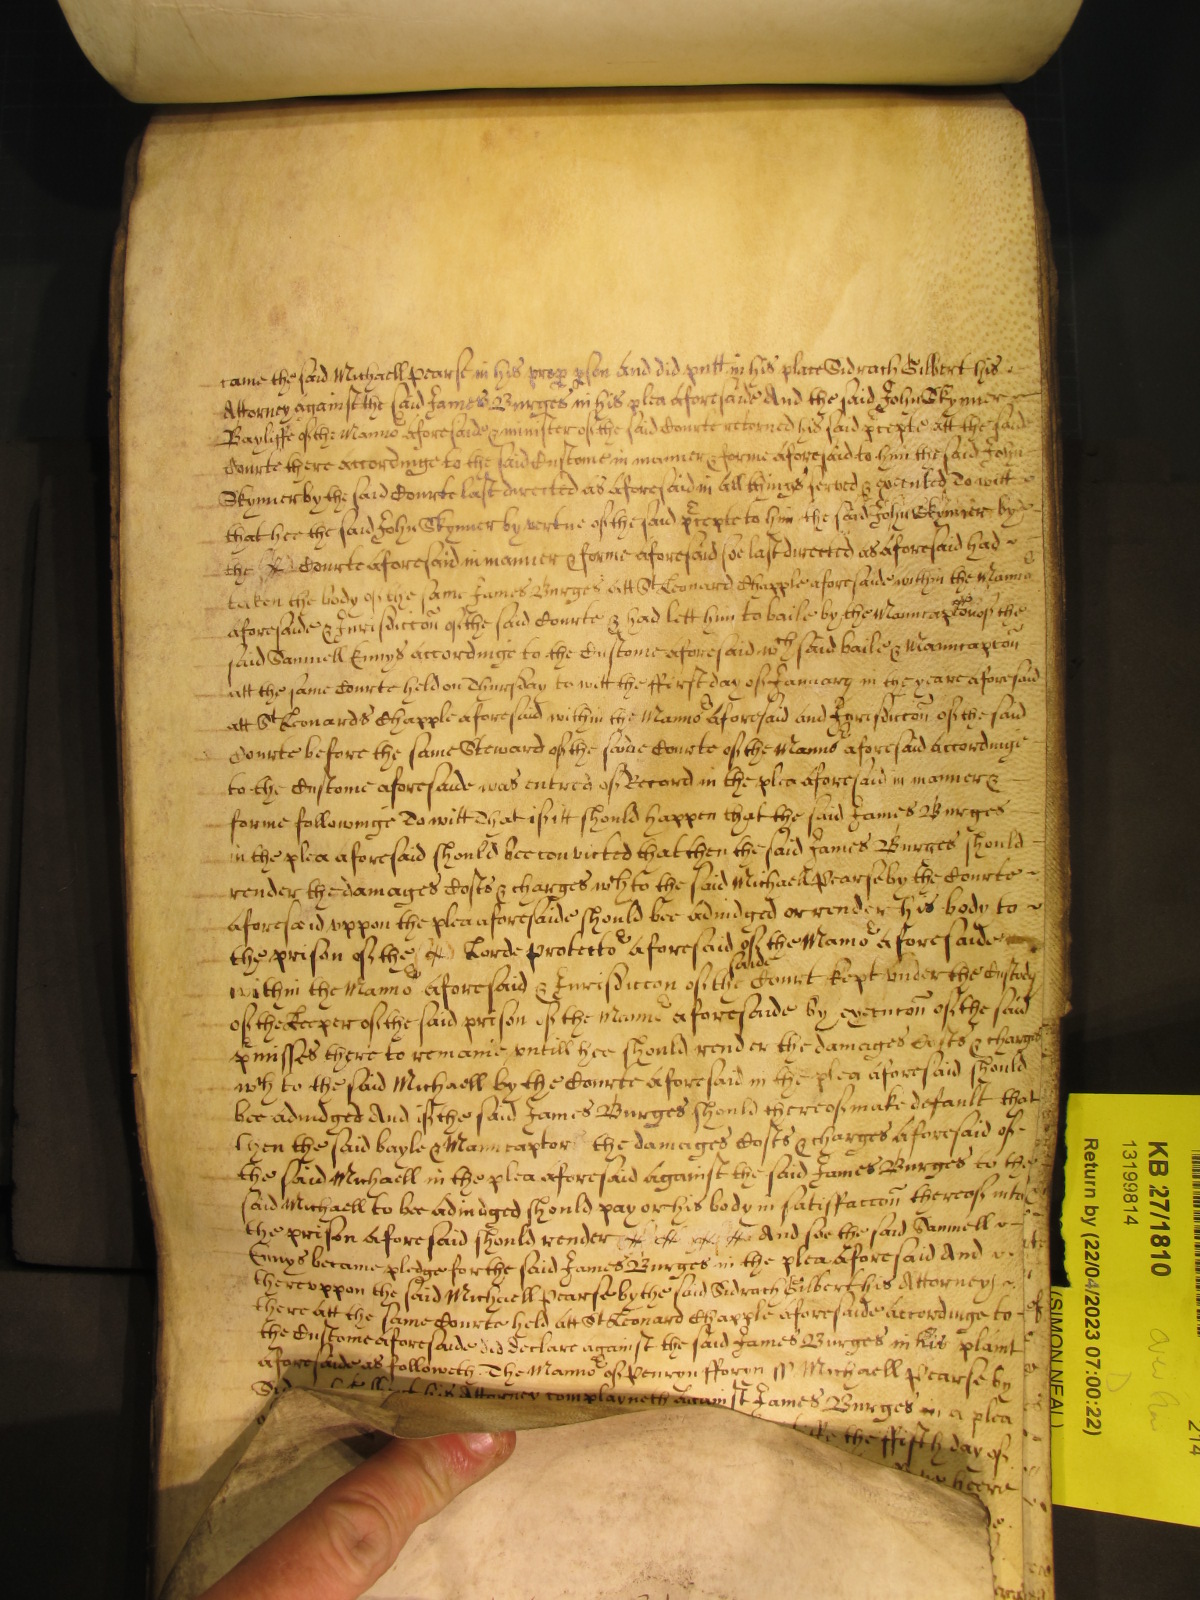 came the said Michaell Pearse in his prop pson and did putt in his place Sidrach Gilbert his
Attorney against the said James Burges in his plea aforesaide And the said John Skynner
Bayliffe of the Manno aforesaide & minister of the said Courte returned his said pcepte att the said
Courte there accordinge to the said Custome in manner & forme aforesaid to him the said John
Skynner by the said Courte last directed as aforesaid in all things served & executed To witt
that hee the said John Skynner by vertue of the said pcepte to him the said John Skynner by
the Courte aforesaid in manner & forme aforesaid soe last directed as aforesaid had
taken the body of the same James Burges att St Leonard Chapple aforesaide within the Manno
aforesaide & Jurisdiccon of the said Courte & had lett him to baile by the Manucapcon of the
said Samuell Ennys accordinge to the Custome aforesaid wch said baile & Manucapcon
att the same Courte held on Thursday to witt the ffirst day of January in the yeare aforesaid
att St Leonards Chapple aforesaid within the Manno aforesaid and Jurisdiccon of the said
Courte before the same Steward of the same Courte of the Manno aforesaid accordinge
to the Custome aforesaide was entred of Record in the plea aforesaid in manner &
forme followinge To witt That if itt should happen that the said James Burges
in the plea aforesaid should bee convicted that then the said James Burges should
render the damages Costs & charges wch to the said Michaell Pearse by the Courte
aforesaid vppon the plea aforesaide should bee adiudged or render his body to
the prison of the Lorde Protecto aforesaid of the Mano aforesaide
within the Manno aforesaid & Jurisdiccon of the saide Court kept vnder the Custody
of the Keeper of the said prison of the Manno aforesaide by execucon of the said
pmisses there to remaine vntill hee should render the damages Costs & charges
wch to the said Michaell by the Courte aforesaid in the plea aforesaid should
bee adiudged And if the said James Burges should thereof make default that
then the said bayle & Manucaptor the damages Costs & charges aforesaid of
the said Michaell in the plea aforesaid against the said James Burges to the
said Michaell to bee adiudged should pay or his body in satisfaccon thereof into
the prison aforesaid should render And soe the said Samuell
Ennys became pledge for the said James Burges in the plea aforesaid And
therevppon the said Michaell Pearse by the said Sidrach Gilbert his Attorney
there att the same Courte held att St Leonard Chapple aforesaide accordinge to
the Custome aforesaide did declare against the said James Burges in his plaint
aforesaide as followeth The Manno of Penryn fforyn ss Michaell Pearse by
his Attorney complayneth against James Burges in a plea
the ffifth day of
heere
KB 27/1810
13199814
Return by (22/04/2023 07:00:22)
(SIMON NEAL)
214